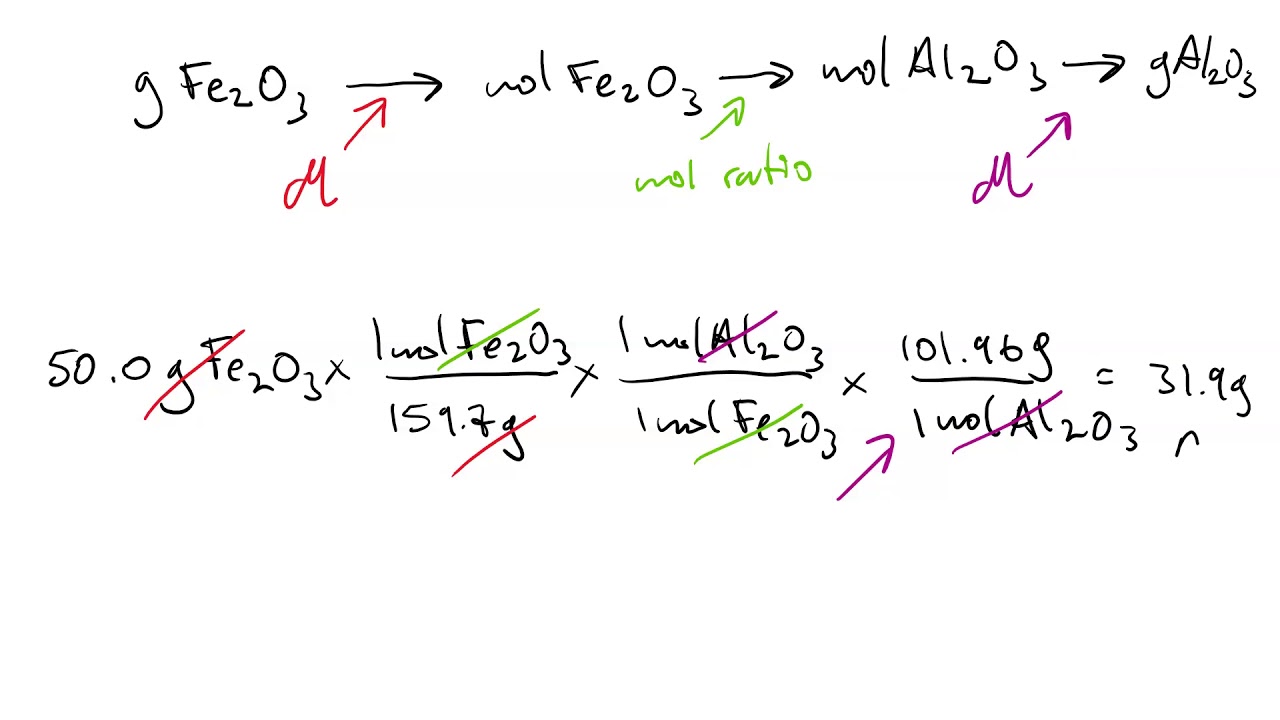 g Fe₂O₃ → mol Fe₂O₃ → mol Al₂O₃ → g Al₂O₃
M mol ratio M
50.0 g Fe₂O₃ × 1 mol Fe₂O₃ / 159.7 g × 1 mol Al₂O₃ / 1 mol Fe₂O₃ × 101.96 g / 1 mol Al₂O₃ = 31.9 g